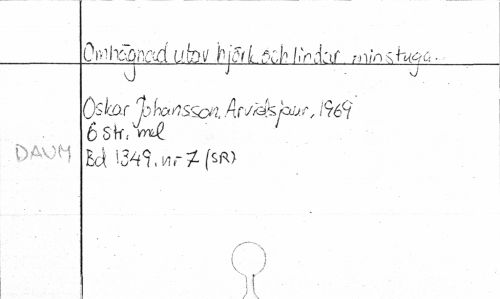 Omhägnad utav björk och lindar, min stuga..
Oskar Johansson, Arvidsjaur, 1969
6 str. mel
DAUM Bd 1349, nr 7 (SR)